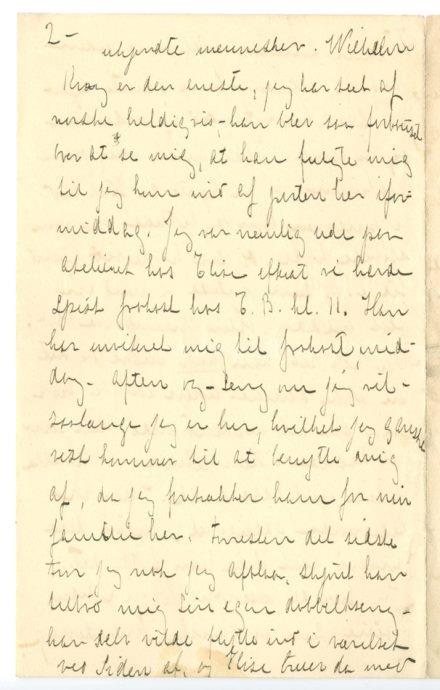 2-
ukjendte mennesker. Wilhelm
Krag er den eneste, jeg har seet af
norske heldigvis,- han blev saa forbauset
over at se mig, at han fulgte mig
til jeg kom ind af porten her ifor-
middag. Jeg var nemlig ude paa
atelieret hos Elise efterat vi havde
spist frokost hos T. B. kl. 11. Han
har inviteret mig til frokost, mid-
dag- aften og- seng om jeg vil-
saalænge jeg er her, hvilket jeg ganske
vist kommer til at benytte mig
af, da jeg foretrækker ham for min
familie her. Forresten det sidste
tror jeg nok jeg afslaar, skjønt han
tilbød mig sin egen dobbeltseng-
han selv vilde flytte ind i værelset
ved siden af, og Elise truer da med